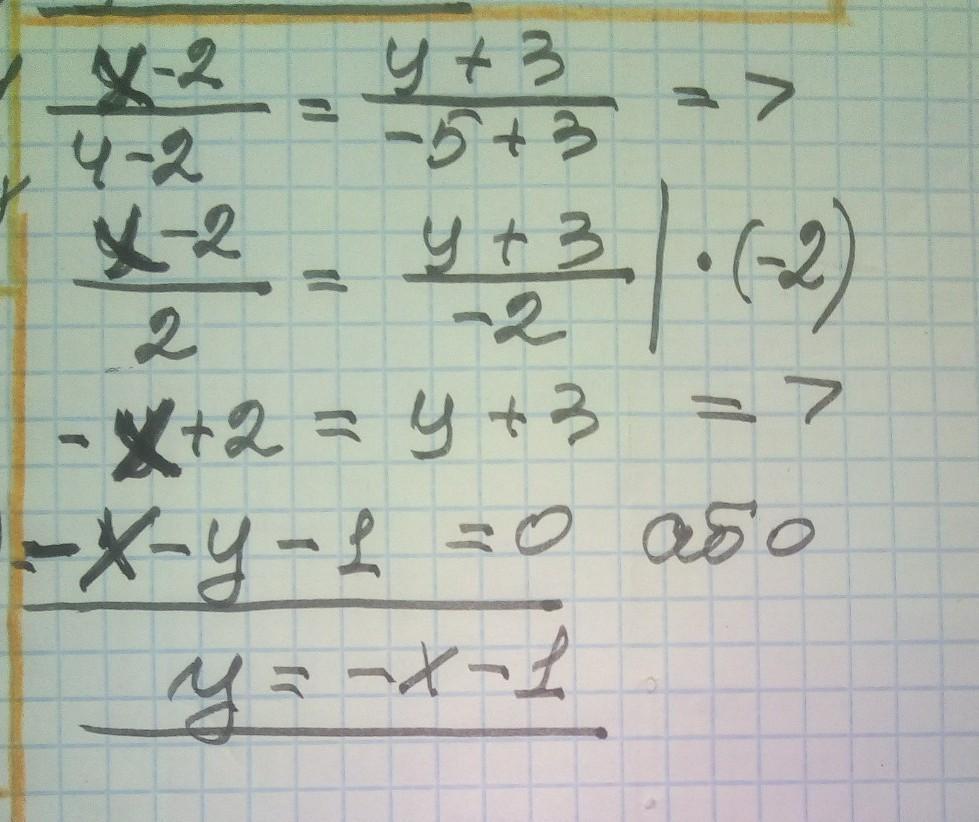 x-2/4-2 = y+3/-5+3 =>
x-2/2 = y+3/-2 | · (-2)
-x+2 = y+3 =>
-x-y-1 =0 або
y = -x-1